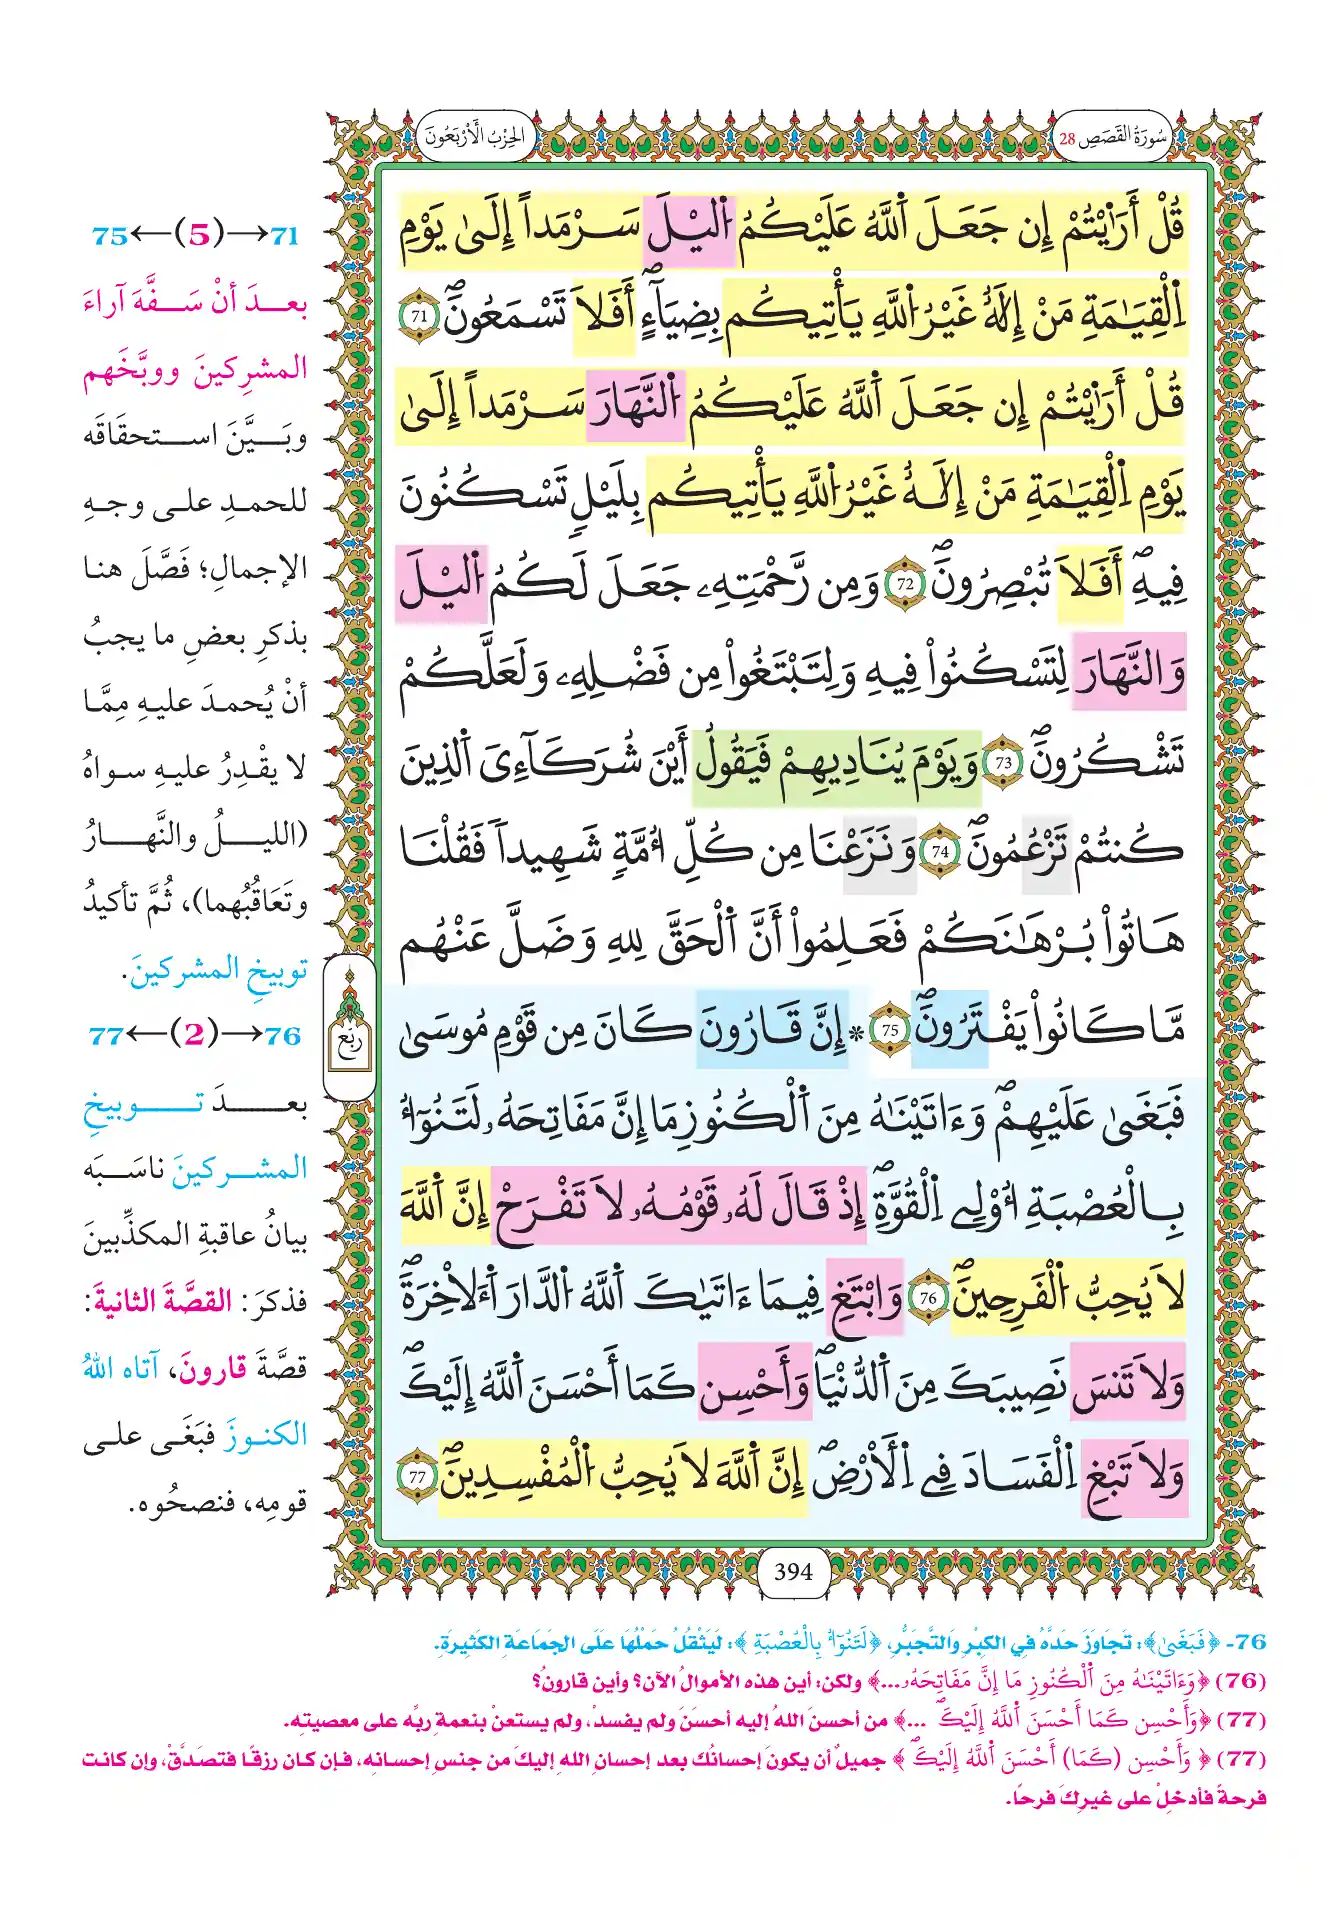 سُورَةُ القَصَصِ 28
الحِزْبُ الأَرْبَعُونَ
قُلْ أَرَٰيْتُمْ إِن جَعَلَ اَ۬للَّهُ عَلَيْكُمُ اُ۬ليْلَ سَرْمَداً إِلَىٰ يَوْمِ
اِ۬لْقِيَٰمَةِ مَنْ إِلَٰهٌ غَيْرُ اُ۬للَّهِ يَأْتِيكُم بِضِيَآءٍۖ أَفَلَا تَسْمَعُونَۖ 71
قُلْ أَرَٰيْتُمْ إِن جَعَلَ اَ۬للَّهُ عَلَيْكُمُ اُ۬لنَّهَارَ سَرْمَداً إِلَىٰ
يَوْمِ اِ۬لْقِيَٰمَةِ مَنْ إِلَٰهٌ غَيْرُ اُ۬للَّهِ يَأْتِيكُم بِلَيْلٖ تَسْكُنُونَ
فِيهِۖ أَفَلَا تُبْصِرُونَۖ 72 وَمِن رَّحْمَتِهِۦ جَعَلَ لَكُمُ اُ۬ليْلَ
وَالنَّهَارَ لِتَسْكُنُواْ فِيهِ وَلِتَبْتَغُواْ مِن فَضْلِهِۦ وَلَعَلَّكُمْ
تَشْكُرُونَۖ 73 وَيَوْمَ يُنَادِيهِمْ فَيَقُولُ أَيْنَ شُرَكَآءِيَ اَ۬لذِينَ
كُنتُمْ تَزْعُمُونَۖ 74 وَنَزَعْنَا مِن كُلِّ أُمَّةٍ شَهِيداً فَقُلْنَا
هَاتُواْ بُرْهَٰنَكُمْ فَعَلِمُواْ أَنَّ اَ۬لْحَقَّ لِلهِ وَضَلَّ عَنْهُم
مَّا كَانُواْ يَفْتَرُونَۖ 75 * إِنَّ قَارُونَ كَانَ مِن قَوْمِ مُوسَىٰ
فَبَغَىٰ عَلَيْهِمْۖ وَءَاتَيْنَٰهُ مِنَ اَ۬لْكُنُوزِ مَا إِنَّ مَفَاتِحَهُۥ لَتَنُوٓأُ
بِالْعُصْبَةِ أُوْلِے اِ۬لْقُوَّةِۖ إِذْ قَالَ لَهُۥ قَوْمُهُۥ لَا تَفْرَحْ إِنَّ اَ۬للَّهَ
لَا يُحِبُّ اُ۬لْفَرِحِينَۖ 76 وَابْتَغِ فِيمَا ءَاتَيٰكَ اَ۬للَّهُ اُ۬لدَّارَ اَ۬لَاخِرَةَۖ
وَلَا تَنسَ نَصِيبَكَ مِنَ اَ۬لدُّنْيَاۖ وَأَحْسِن كَمَا أَحْسَنَ اَ۬للَّهُ إِلَيْكَۖ
وَلَا تَبْغِ اِ۬لْفَسَادَ فِے اِ۬لْأَرْضِۖ إِنَّ اَ۬للَّهَ لَا يُحِبُّ اُ۬لْمُفْسِدِينَۖ 77
رُبْع
394
71→(5)←75
بعدَ أنْ سَفَّهَ آراءَ
المشرِكينَ ووبَّخَهم
وبَيَّنَ استحقَاقَه
للحمدِ على وجهِ
الإجمالِ؛ فَصَّلَ هنا
بذكرِ بعضِ ما يجبُ
أنْ يُحمدَ عليهِ مِمَّا
لا يقْدِرُ عليهِ سواهُ
(الليلُ والنَّهارُ
وتَعَاقُبُهما)، ثُمَّ تأكيدُ
توبيخِ المشركينَ.
76→(2)←77
بعدَ توبيخِ
المشركينَ ناسَبَه
بيانُ عاقبةِ المكذِّبينَ
فذكرَ: القصَّةَ الثانيةَ:
قصَّةَ قارونَ، آتاه اللهُ
الكنوزَ فبَغَى على
قومِه، فنصحُوه.
76- ﴿فَبَغَىٰ﴾: تَجَاوَزَ حَدَّهُ فِي الكِبْرِ وَالتَّجَبُّرِ، ﴿لَتَنُوٓأُ بِالْعُصْبَةِ﴾: لَيَثْقُلُ حَمْلُهَا عَلَى الجَمَاعَةِ الكَثِيرَةِ.
(76) ﴿وَءَاتَيْنَٰهُ مِنَ اَ۬لْكُنُوزِ مَا إِنَّ مَفَاتِحَهُۥ...﴾ ولكن: أين هذه الأموالُ الآن؟ وأين قارونُ؟
(77) ﴿وَأَحْسِن كَمَا أَحْسَنَ اَ۬للَّهُ إِلَيْكَۖ ...﴾ من أحسنَ اللهُ إليه أحسَنَ ولم يفسدْ، ولم يستعنْ بنعمةِ ربِّه على معصيتِه.
(77) ﴿وَأَحْسِن (كَمَا) أَحْسَنَ اَ۬للَّهُ إِلَيْكَۖ﴾ جميلٌ أن يكونَ إحسانُك بعد إحسانِ اللهِ إليكَ من جنسِ إحسانِه، فإن كان رزقًا فتصَدَّقْ، وإن كانت
فرحةً فأدخِلْ على غيرِكَ فرحًا.